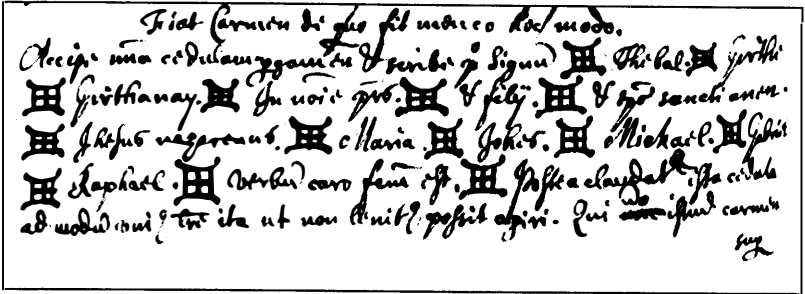 Fiat Carmen de quo fit menco hoc modo.
Accipe unā cedulam pgamēn & scribe Signū ✠ Thebal ✠ Guthe
✠ Guthanay. ✠ In noīe prs. ✠ & filij. ✠ & sps sancti amen.
✠ Jhesus nazerenus. ✠ Maria. ✠ Johes. ✠ Michael. ✠ Gabriel
✠ Raphael. ✠ Verbū caro fcm̄ est. ✠ Postea claudat ista cedula
ad modū uniꝰ lrē ita ut non leuit possit apiri. Qui istud carmen
sup